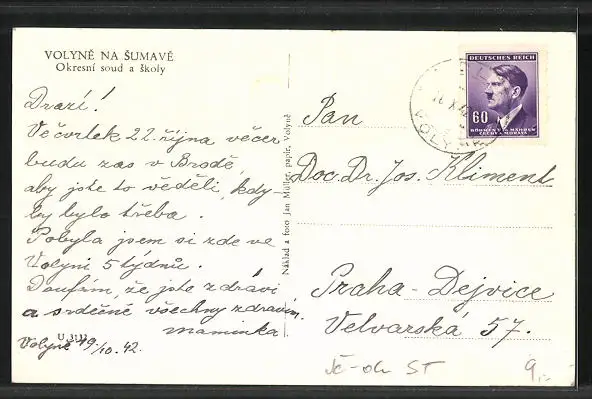 VOLYNĚ NA ŠUMAVĚ
Okresní soud a školy
Drazí!
Ve čtvrtek 22. října večer
budu zas v Brodě,
aby jste to věděli, kdy-
by bylo třeba.
Pobyla jsem si zde ve
Volyni 5 týdnů.
Doufám, že jste zdrávi
a srdečně všechny zdravím.
maminka
U 3112
Volyně 19/10. 42.
Náklad a foto Jan Müller, papír, Volyně
DEUTSCHES REICH
60
BÖHMEN U. MÄHREN
ČECHY A MORAVA
Pan
Doc. Dr. Jos. Kliment
Praha-Dejvice
Velvarská 57.
ST
9,-